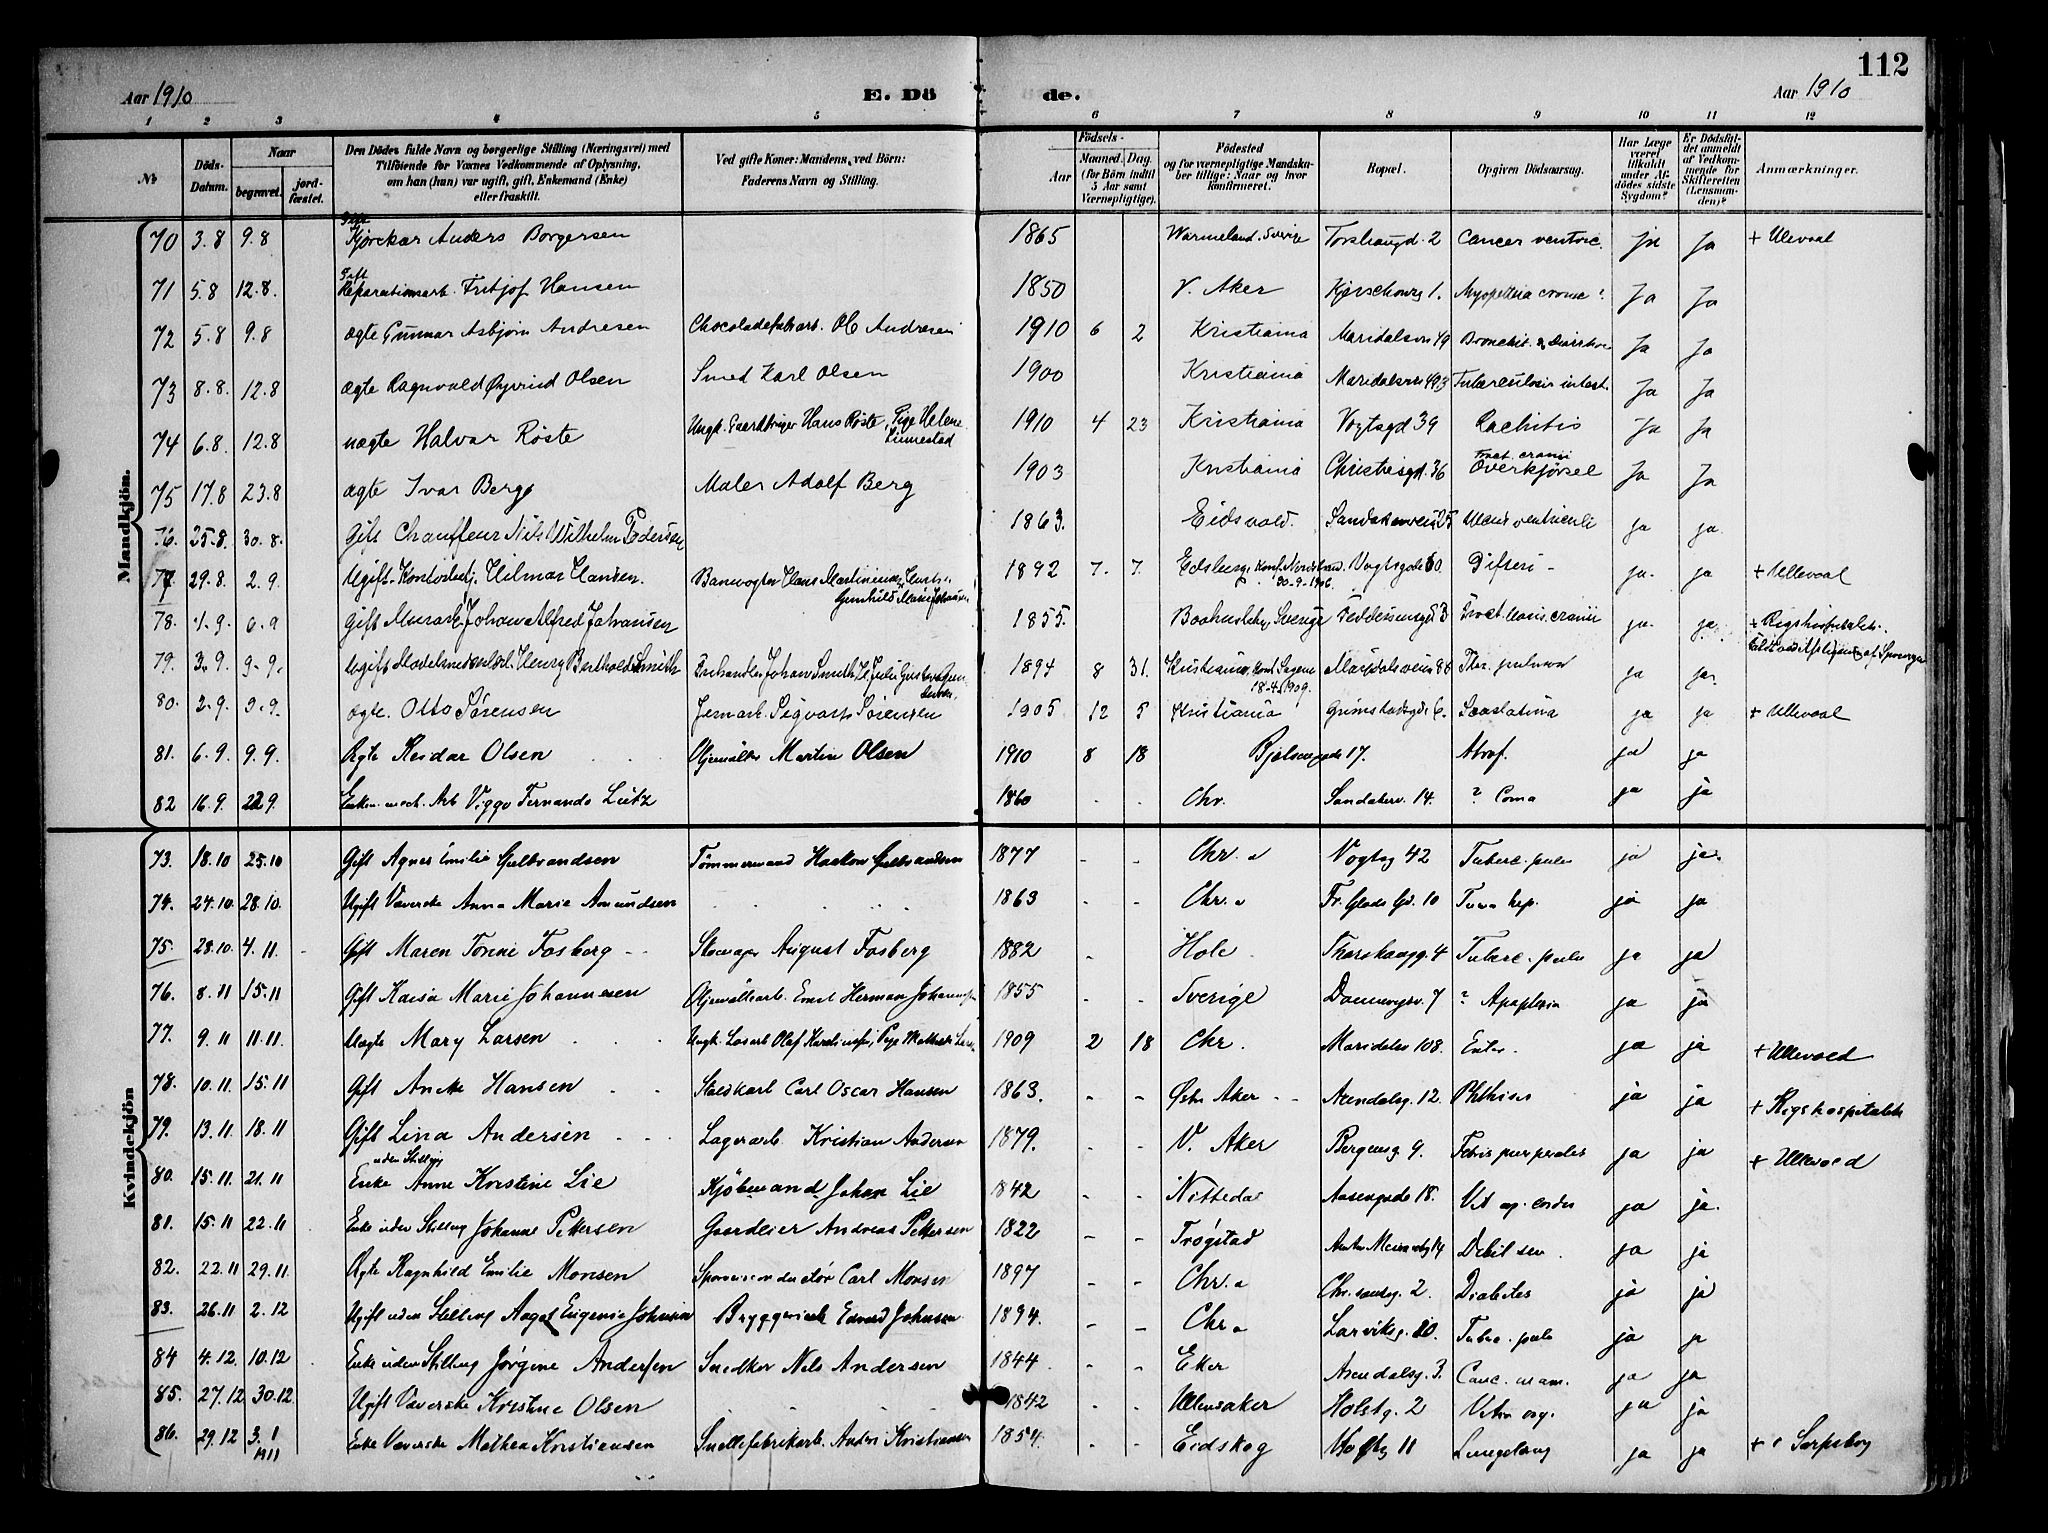 112
Aar 1910 E. Dö de. Aar 1910
1 2 3 4 5 6 7 8 9 10 11 12
No Döds-Datum. Naar begravet. jordfæstet. Den Dödes fulde Navn og borgerlige Stilling (Næringsvei) med Tilföiende for Voxnes Vedkommende af Oplysning, om han (hun) var ugift, gift, Enkemand (Enke) eller fraskilt. Ved gifte Koner: Mandens, ved Börn: Faderens Navn og Stilling. Födsels- Aar Maaned. Dag. (for Börn indtil 5 Aar samt Værnepligtige). Födested og for værnepligtige Mandskaber tillige: Naar og hvor konfirmeret. Bopæl. Opgiven Dödsaarsag. Har Læge været tilkaldt under Afdödes sidste Sygdom? Er Dödsfaldet anmeldt af Vedkommende for Skifteretten (Lensmanden)? Anmærkninger.
Mandkjön.
70 3.8 9.8 Gift Anders Borgersen 1865 Warmeland, Sverige Torshaugd. 2 Cancer ventric. ja Ja + Ulevaal
71 5.8 12.8. Gift Reparationsarb. Fritjof Hansen 1850 V. Aker 1. Ja Ja
72 5.8 9.8 ægte Gunnar Asbjørn Andresen Chocoladefabarb. Ol Andresen 1910 6 2 Kristiania Maridalsvn 49 Bronchit. & Diarrhoe Ja Ja
73 8.8. 12.8 ægte Ragnvald Øyvind Olsen Smed Karl Olsen 1900 Kristiania Maridalsvn 493 Tuberculosis intest. Ja Ja
74 6.8. 12.8 uægte Halvar Røste Ungk. Hans Røste, Pige Helene Linnestad 1910 4 23 Kristiania Vogtsgd 39 Rachitis Ja Ja
75 17.8 23.8 ægte Ivar Berg Maler Adolf Berg 1903 Kristiania Christiesgd. 36 Fract. cranii Overkjørsel Ja Ja
76. 25.8. 30.8. Gift Chauffeur Nils Wilhelm Pedersen 1863. Eidsvold. Sandakerveien 25 Ulcus ventriculi ja ja.
77. 29.8. 2.9. Ugift Kontorbetj. Hilmar Hansen. Banevogter Hans Martinius Gunhild Marie Johansen 1892 7. 7. Edsberg, Konf. Nordstrand 30-9-1906. Vogtsgade 60. Difteri - ja. ja + Ullevaal
78. 1.9. 6.9 Gift Murarb. Johan Alfred Johansen 1855. Baahuslehn, Sverige Teddersensgd 3 Fract. basis cranii ja. ja. + Rigshospitalet.
79. 3.9. 9.9. Ugift Modelsnedkerlærl. Henry Berthold Smith Johan Smith, 1894 8 31. Kristiania, konf. Sagene 18-4-1909. Maridalsveien 88 Tbc. pulmon ja ja.
80. 2.9. 9.9. ægte. Otto Sørensen Jernarb. Sigvart Sørensen 1905 12 5 Kristiania Grimstadgd 6. Scarlatina ja ja + Ullevaal
81. 6.9. 9.9. Ægte Reidar Olsen Oljemølle Martin Olsen 1910 8 18 Bjølsengade 17. Atrof. ja ja
82 16.9. 22.9. Enkem. mek. Arb Viggo Fernando Lütz 1860 - - Chr. Sandakerv. 14. ? Coma ja ja
Kvindekjön
73. 18.10 25.10 Gift Agnes Emilie Gulbrandsen Tømmermand Haakon Gulbrandsen 1877 - - Chr.a Vogtsg 42 Tuberc. pulm ja ja.
74. 24.10 28.10. Ugift Væverske Anna Marie Amundsen 1863 - - Chr.a Fr. Glads Gd. 10 Tumor hep. ja ja
75. 28.10 4.11. Gift Maren Tonine Fosberg Skomager August Fosberg 1882 - Hole Thorshaugg. 4 Tuberc. pulm ja ja
76. 8.11 15.11 Gift Kaisa Marie Johannesen Oljemøllearb. Ernst Herman Johannesen 1855 - - Sverige Dannevigsv. 7 ? Apoplexia ja ja
77. 9.11 11.11. Uægte Mary Larsen Ungk. Løsarb Olaf 1909 2 18 Chr. Maridalsv 108. Enter. ja ja + Ullevold
78. 10.11. 15.11 Gift Anette Hansen Staldkarl Carl Oscar Hansen 1863. - - Østr Aker Arendalsg. 12. Phthisis ja ja + Rigshospitalet
79. 13.11 18.11 Gift Lina Andersen Lagerarb. Kristian Andersen 1879. - - V. Aker Bergensg 9. Febris puerperalis ja ja + Ullevold
80. 15.11 21.11 Enke uden Stilling Anne Kristine Lie Kjøbmand Johan Lie 1842 - - Nittedal Aasengade 18. Vit. org. cordis ja ja.
81. 15.11 22.11 Enke uden Stilling Johanne Pettersen Gaardeier Andreas Pettersen 1822 - - Trøgstad 14 Debil. sen. ja ja
82. 22.11 29.11. Ægte Ragnhild Emilie Monsen Sporveiskonduktør Carl Monsen 1897 - - Chr.a Chr.sandsg. 2. Diabetes ja ja
83. 26.11 2.12 Ugift uden Stilling Aagot Eugenie Johnsen Bryggeriarb Edvard Johnsen 1894. - - Chr.a Larviksg. 20. Tuberc. pulm ja ja
84 4.12. 10.12 Enke uden Stilling Jørgine Andersen Snedker Nils Andersen 1844 - - Eker Arendalsg. 3. Canc. mam. ja ja
85. 27.12 30.12 Ugift Væverske Kristine Olsen 1842 - - Ullensaker Holstg. 2 Vitium org. ja ja
86. 29.12 3.1 1911 Enke Væverske Mathea Kristiansen Snellefabrikarb. Anders Kristiansen 1854. - - Eidskog Holstg 11 Lungebetændelse ja ja + Sarpsborg